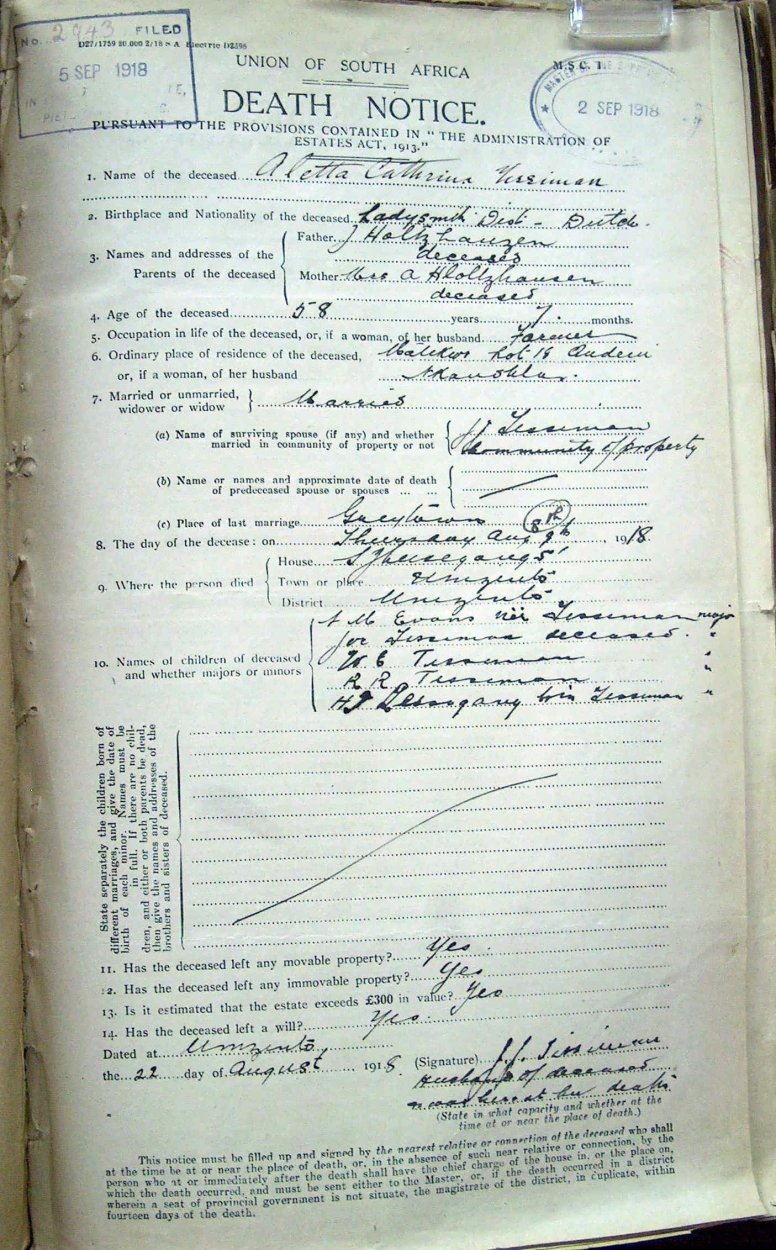 No. 2943 FILED
5 SEP 1918
D27/1759 20.000 2/18 S A Electric D2398
UNION OF SOUTH AFRICA
M.S.C. 1.
MASTER OF THE SUPREME
2 SEP 1918
DEATH NOTICE.
PURSUANT TO THE PROVISIONS CONTAINED IN "THE ADMINISTRATION OF
ESTATES ACT, 1913."
1. Name of the deceased Aletta Cathrina Tissiman
2. Birthplace and Nationality of the deceased Ladysmith Dist - Dutch.
3. Names and addresses of the Parents of the deceased
Father J Holtzhauzen
deceased
Mother Mrs A Holtzhausen
deceased
4. Age of the deceased 58 years 7 months.
5. Occupation in life of the deceased, or, if a woman, of her husband Farmer
6. Ordinary place of residence of the deceased, Lot 18
or, if a woman, of her husband
7. Married or unmarried, widower or widow } Married
(a) Name of surviving spouse (if any) and whether married in community of property or not { J J Tissiman
Community of property
(b) Name or names and approximate date of death of predeceased spouse or spouses ... ...
(c) Place of last marriage Greytown
8. The day of the decease: on Thursday Aug 8th 1918
9. Where the person died
House
Town or place Umzinto
District Umzinto
10. Names of children of deceased and whether majors or minors
M Evans née Tissiman major
Tissiman deceased. "
W E Tissiman "
R R Tissiman "
Tissiman "
State separately the children born of different marriages, and give the date of birth of each minor. Names must be in full. If there are no children, and either or both parents be dead, then give the names and addresses of the brothers and sisters of deceased.
11. Has the deceased left any movable property? Yes
12. Has the deceased left any immovable property? Yes
13. Is it estimated that the estate exceeds £300 in value? Yes
14. Has the deceased left a will? Yes.
Dated at Umzinto
the 22 day of August 1918
(Signature) J.J. Tissiman
Husband of deceased
was here at her death
(State in what capacity and whether at the
time at or near the place of death.)
This notice must be filled up and signed by the nearest relative or connection of the deceased who shall
at the time be at or near the place of death, or, in the absence of such near relative or connection, by the
person who at or immediately after the death shall have the chief charge of the house in, or the place on,
which the death occurred, and must be sent either to the Master, or, if the death occurred in a district
wherein a seat of provincial government is not situate, the magistrate of the district, in duplicate, within
fourteen days of the death.